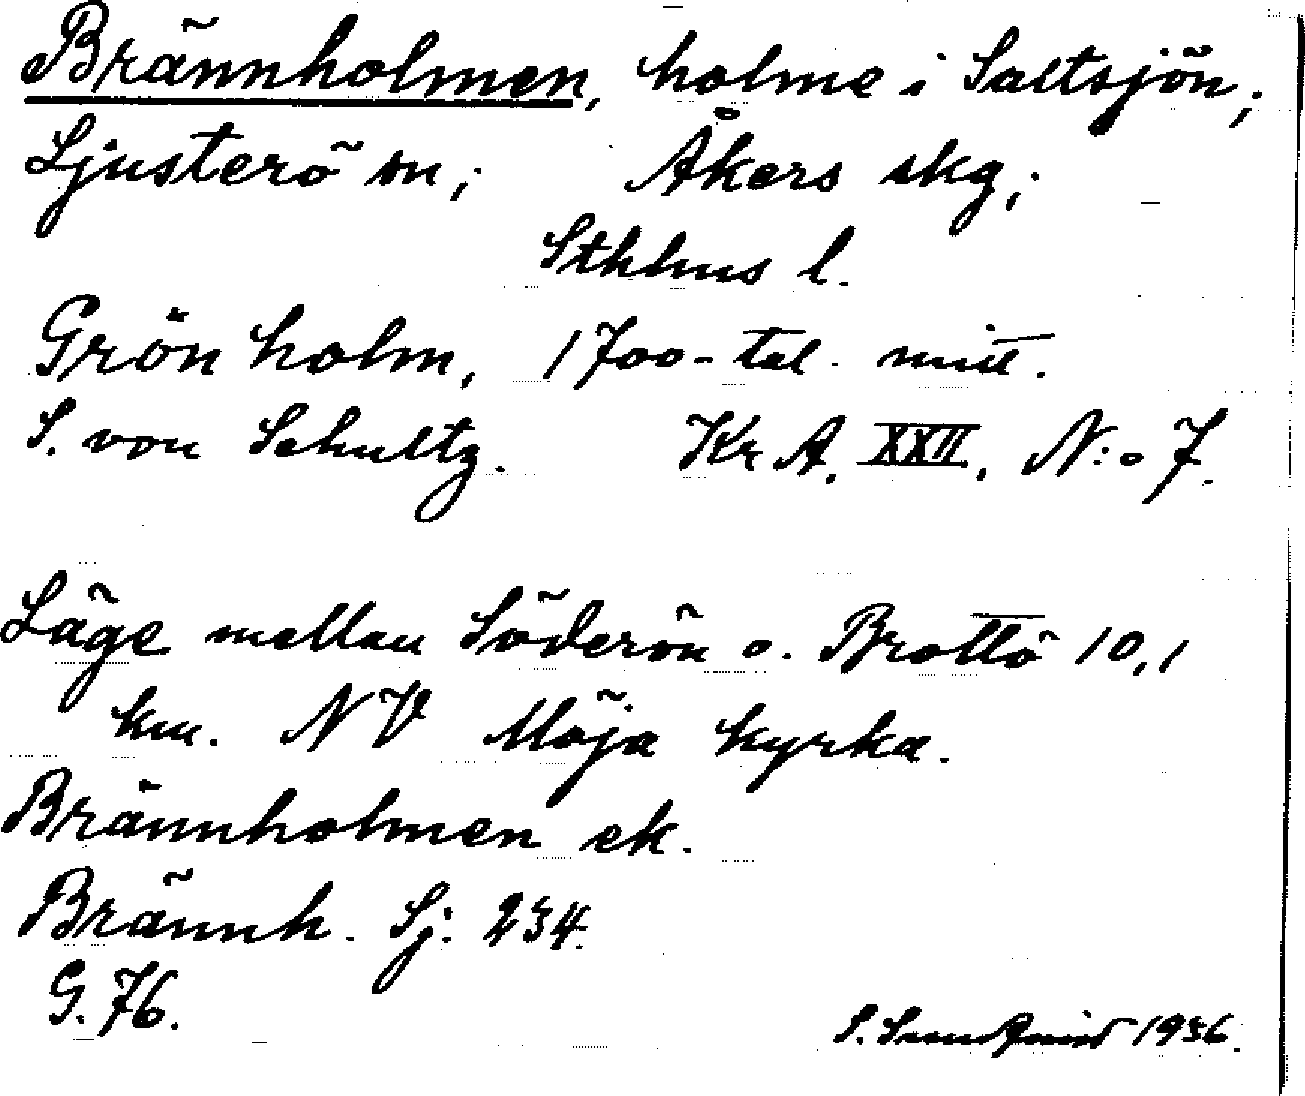 Brännholmen, holme i Saltsjön;
Ljusterö sn; Åkers skg;
Sthlms l.
Grönholm, 1700-tal. mitt.
S. von Schultz. Kr A. XXII. N:o 7.
Läge mellan Söderön o. Brottö 10,1
km. NV Möja kyrka.
Brännholmen ek.
Brännh. Sj. 234.
G. 76.
S. 1936.